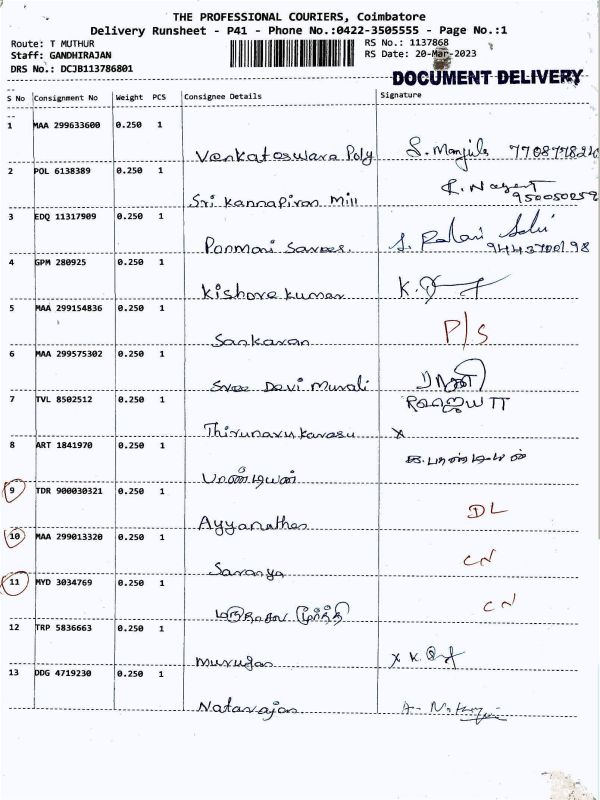 THE PROFESSIONAL COURIERS, Coimbatore
Delivery Runsheet - P41 - Phone No.:0422-3505555 - Page No.:1
Route: T MUTHUR
Staff: GANDHIRAJAN
DRS No.: DCJB113786801
RS No.: 1137868
RS Date: 20-Mar-2023
DOCUMENT DELIVERY
S No Consignment No Weight PCS Consignee Details Signature
1 MAA 299633600 0.250 1
Venkateswara Poly S. Manjula
2 POL 6138389 0.250 1
Sri Kannapiran Mill
3 EDQ 11317909 0.250 1
Ponmani Sarees.
4 GPM 280925 0.250 1
Kishore kumar
5 MAA 299154836 0.250 1
Sankaran P/S
6 MAA 299575302 0.250 1
Sree Devi Murali
7 TVL 8502512 0.250 1
Thirunavukarasu x
8 ART 1841970 0.250 1
பாண்டியன்
9 TDR 900030321 0.250 1
Ayyanathan DL
10 MAA 299013320 0.250 1
Saranya CN
11 MYD 3034769 0.250 1
CN
12 TRP 5836663 0.250 1
Murugan x K.
13 DDG 4719230 0.250 1
Natarajan